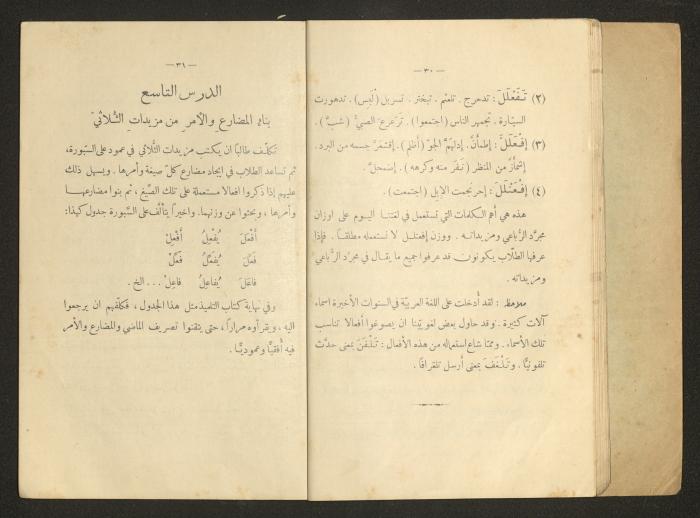 — ٣٠ —
(٢) تَـفَعْلَلَ : تدحرج . تلعثم . تبختر . تسربل (لَبِس) . تدهورت
السيّارة . تجمهر الناس (اجتمعوا) . ترَعرع الصبيُّ (شبَّ) .
(٣) إِفْـعَلَلَّ : إطمأنَّ . إدلهمَّ الجوّ (أظلم) . إقشعرَّ جسمه من البرد .
إشمأزَّ من المنظر (نـفَر منه وكرهه) . إضمحلَّ .
(٤) إِفْـعَنْـلَلَ : إحرنجمت الإبل (اجتمعت) .
هذه هي أهم الكلمات التي تستعمل في لغتنا اليوم على اوزان
مجرَّد الرُّباعي ومزيداته . ووزن إفعنلل لا نستعمله مطلقاً . فإذا
عرفها الطلّاب يكونون قد عرفوا جميع ما يقال في مجرّد الرُّباعي
ومزيداته .
ملاحظة : لقد أُدخلت على اللغة العربيّة في السنوات الأخيرة اسماء
آلات كثيرة . وقد حاول بعض لغويّينا ان يصوغوا أفعالا تناسب
تلك الأسماء . وممّا شاع استعماله من هذه الأفعال : تَـلْـفَنَ بمعنى حدَّث
تلفونيًّا . وتَـلْـغَفَ بمعنى أرسل تلغرافًا .
— ٣١ —
الدرس التاسع
بناء المضارع والأمر من مزيدات الثُّلاثيّ
نكلّف طالبًا ان يكتب مزيدات الثُّلاثي في عمود على السَّبورة،
ثم نساعد الطلاب في ايجاد مضارع كلّ صيغة وأمرها . ويسهل ذلك
عليهم إذا ذكروا افعالا مستعملة على تلك الصِّيغ ، ثم بنوا مضارعها
وأمرها ، وبحثوا عن وزنهما . واخيراً يتألّف على السَّبورة جدول كهذا :
أَفْعَلَ يُفْعِلُ أَفْعِلْ
فَعَّلَ يُفَعِّلُ فَعِّلْ
فاعَلَ يُفاعِلُ فاعِلْ ... الخ .
وفي نهاية كتاب التلميذ مثل هذا الجدول ، فكلّفهم ان يرجعوا
اليه ، ويقرأوه مراراً ، حتى يتقنوا تصريف الماضي والمضارع والأمر
فيه أُفقيًّا وعموديًّا .